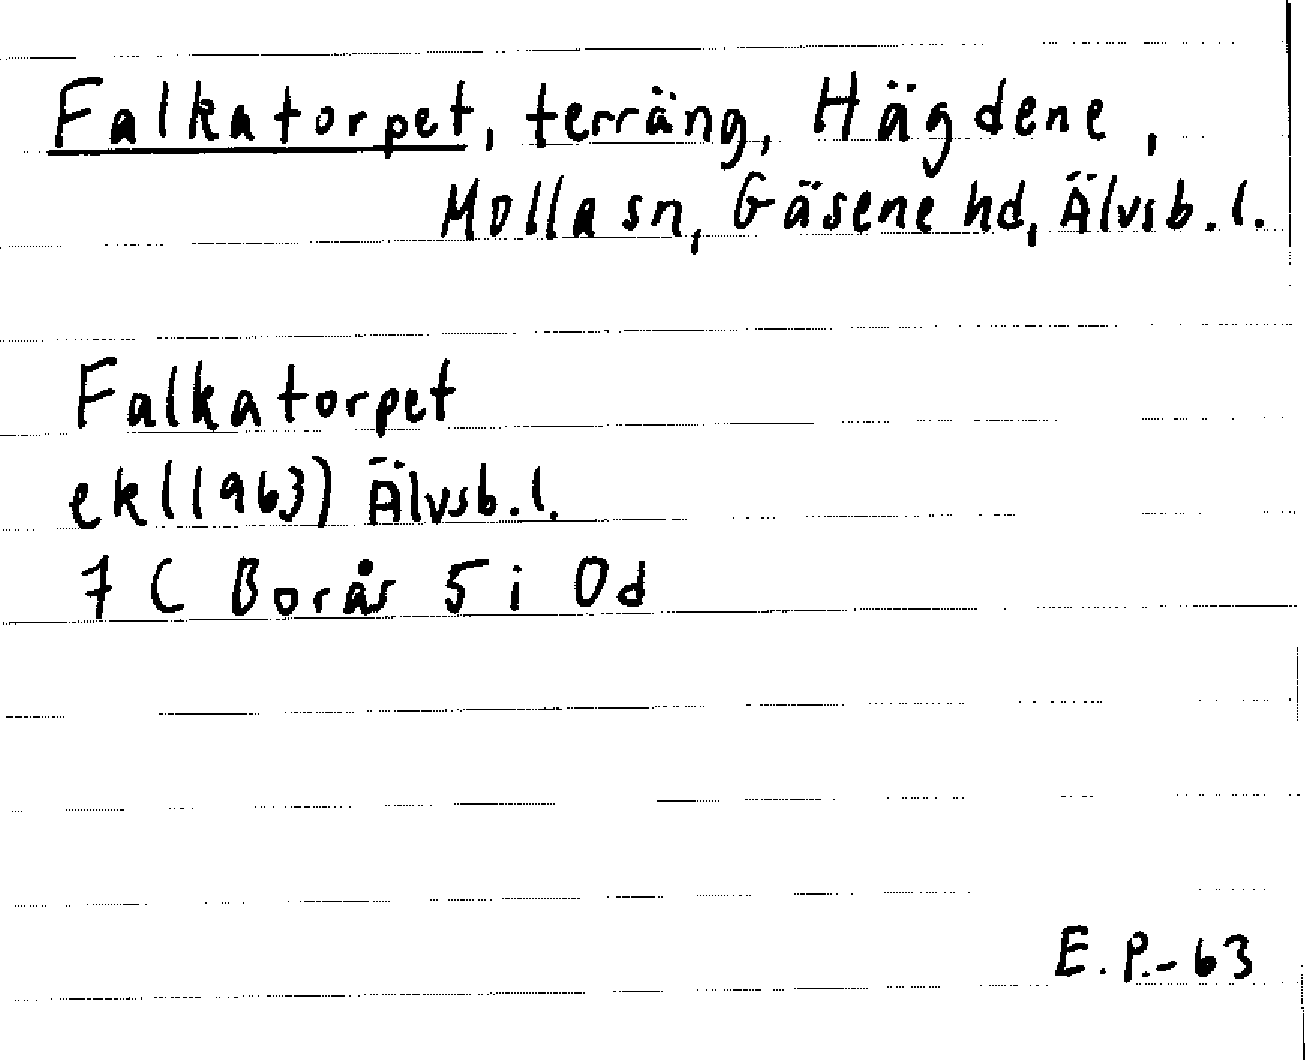 Falkatorpet, terräng, Hägdene,
Molla sn, Gäsene hd, Älvsb. l.
Falkatorpet
ek (1963) Älvsb. l.
7 C Borås 5 i Od
E. P. - 63